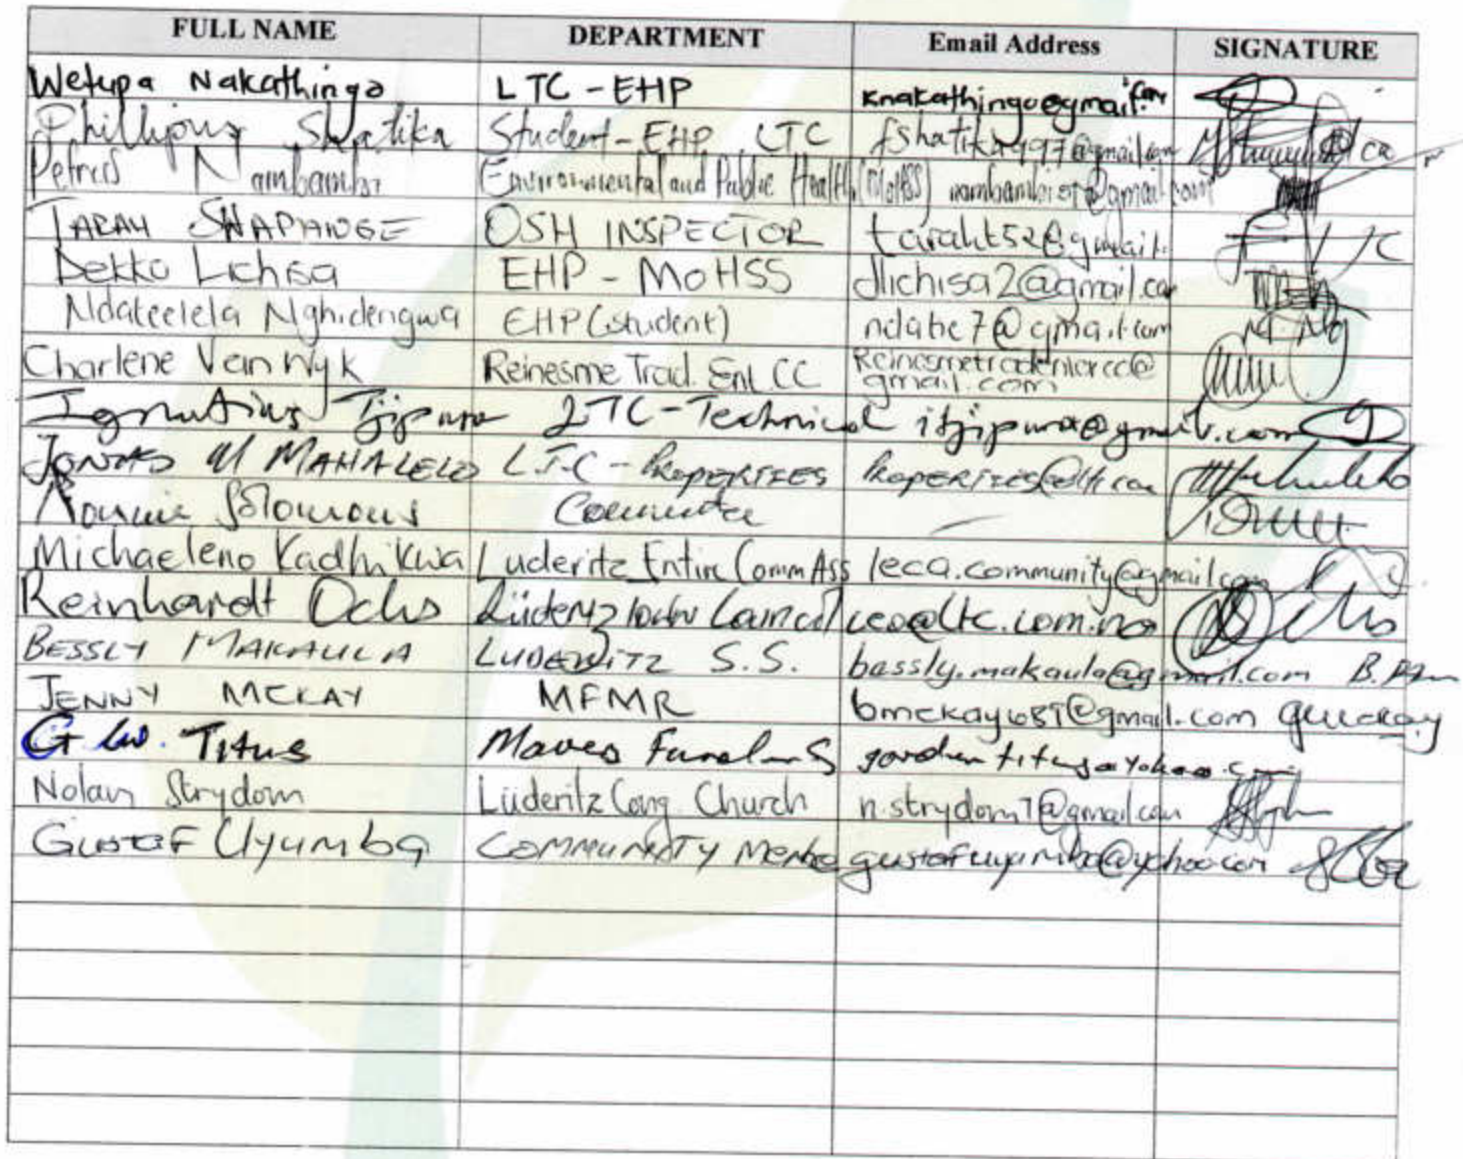 FULL NAME DEPARTMENT Email Address SIGNATURE
Wetupa Nakathingo LTC - EHP knakathingo@gmail.com
Phillipus Shatika Student - EHP LTC fshatika997@gmail.com
Petrus Nambambi Environmental and Public Health (MoHSS) nambambi @gmail.com
TARAH SHAPANGE OSH INSPECTOR taraht52@gmail.
Dekko Lichisa EHP - MOHSS dlichisa2@gmail.com
Ndateelela Nghidengwa EHP (student) ndatie7@gmail.com
Charlene Van Wyk Reinesme Trad. Ent CC Reinesmetradentercc@
gmail.com
Ignatius Tjipura LTC - Technical itjipura@gmail.com
JONAS M MAHALELO LTC - PROPERTIES PROPERTIES@ltc.com
Solomons
Michaeleno Kadhikwa Luderitz Entire Comm Ass leca.community@gmail.com
Reinhardt Ochs Lüderitz Town Council ceo@ltc.com.na
BESSLY MAKAULA LUDERITZ S.S. bessly.makaula@gmail.com
JENNY MCKAY MFMR bmckay687@gmail.com
G W. Titus Maves Funerals gordon titus@yahoo.com
Nolan Strydom Lüderitz Cong. Church n.strydom7@gmail.com
GUSTAF Uyumba COMMUNITY Membe gustafuyumba@yahoo.com